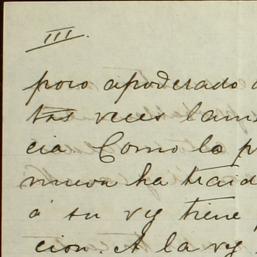 III.
poco apoderado
tas veces lam
cia. Como la p
nueva ha traid
á su vez tiene
cion. A la vez